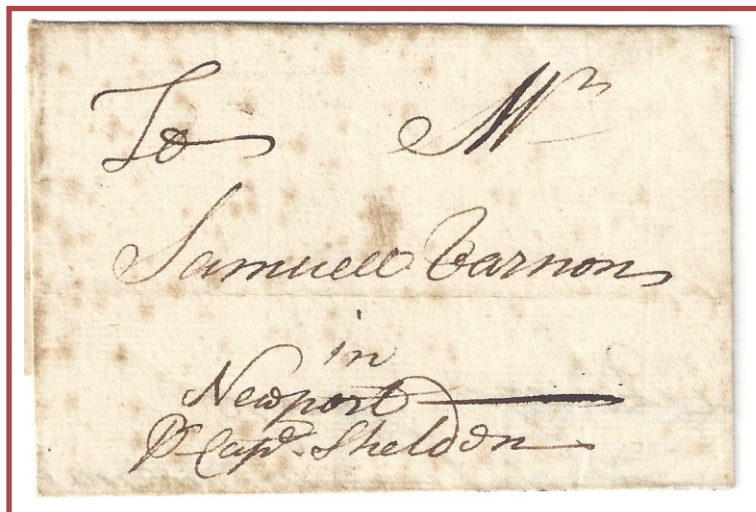 To Mr
Samuell Varnon
in
Newport
Pr Capt. Sheldon